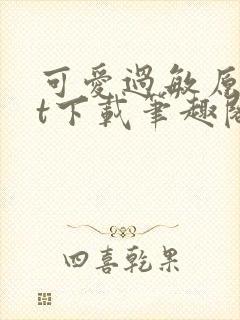 可愛過敏原
t下載筆趣閣
四喜乾果